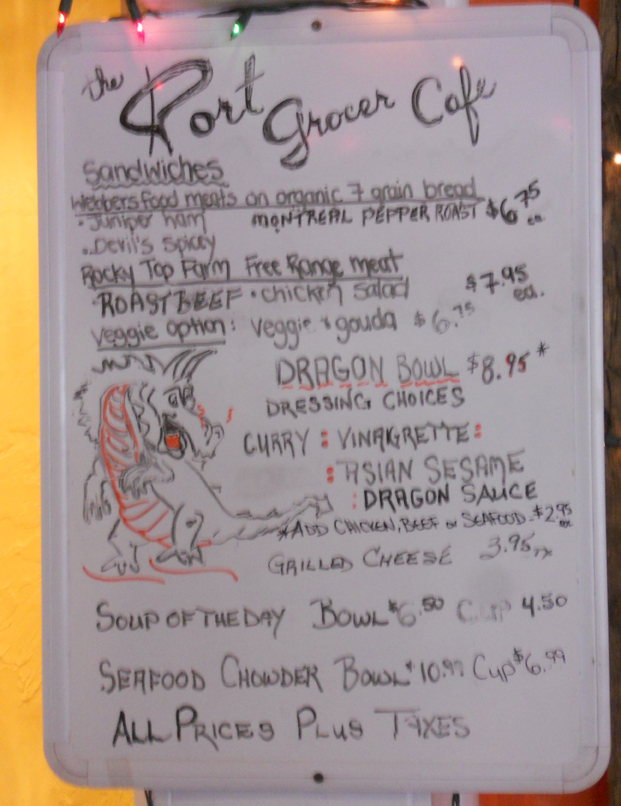 the Port Grocer Cafe
Sandwiches
Webbers Food meats on organic 7 grain bread
• Juniper ham MONTREAL PEPPER ROAST $6.75 ea
• Devil's Spicey
Rocky Top Farm Free Range meat
• ROAST BEEF • chicken salad $7.95 ea.
veggie option: veggie & gouda $6.75
DRAGON BOWL $8.95 *
DRESSING CHOICES
CURRY : VINAGRETTE :
: ASIAN SESAME
: DRAGON SAUCE
* ADD CHICKEN, BEEF or SEAFOOD - $2.95 ea
GRILLED CHEESE 3.95
SOUP OF THE DAY BOWL $6.50 Cup 4.50
SEAFOOD CHOWDER BOWL $10.99 Cup $6.99
ALL PRICES PLUS TAXES